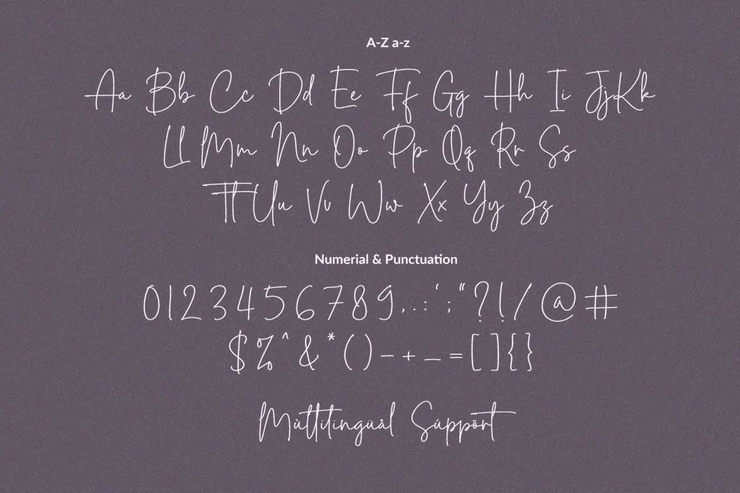 A-Z a-z
Aa Bb Cc Dd Ee Ff Gg Hh Ii Jj Kk
Ll Mm Nn Oo Pp Qq Rr Ss
Tt Uu Vv Ww Xx Yy Zz
Numerial & Punctuation
0123456789,.:‘;“?!/@#
$%^&*()-+_=[]{}
Mùltilingùàl Súppört